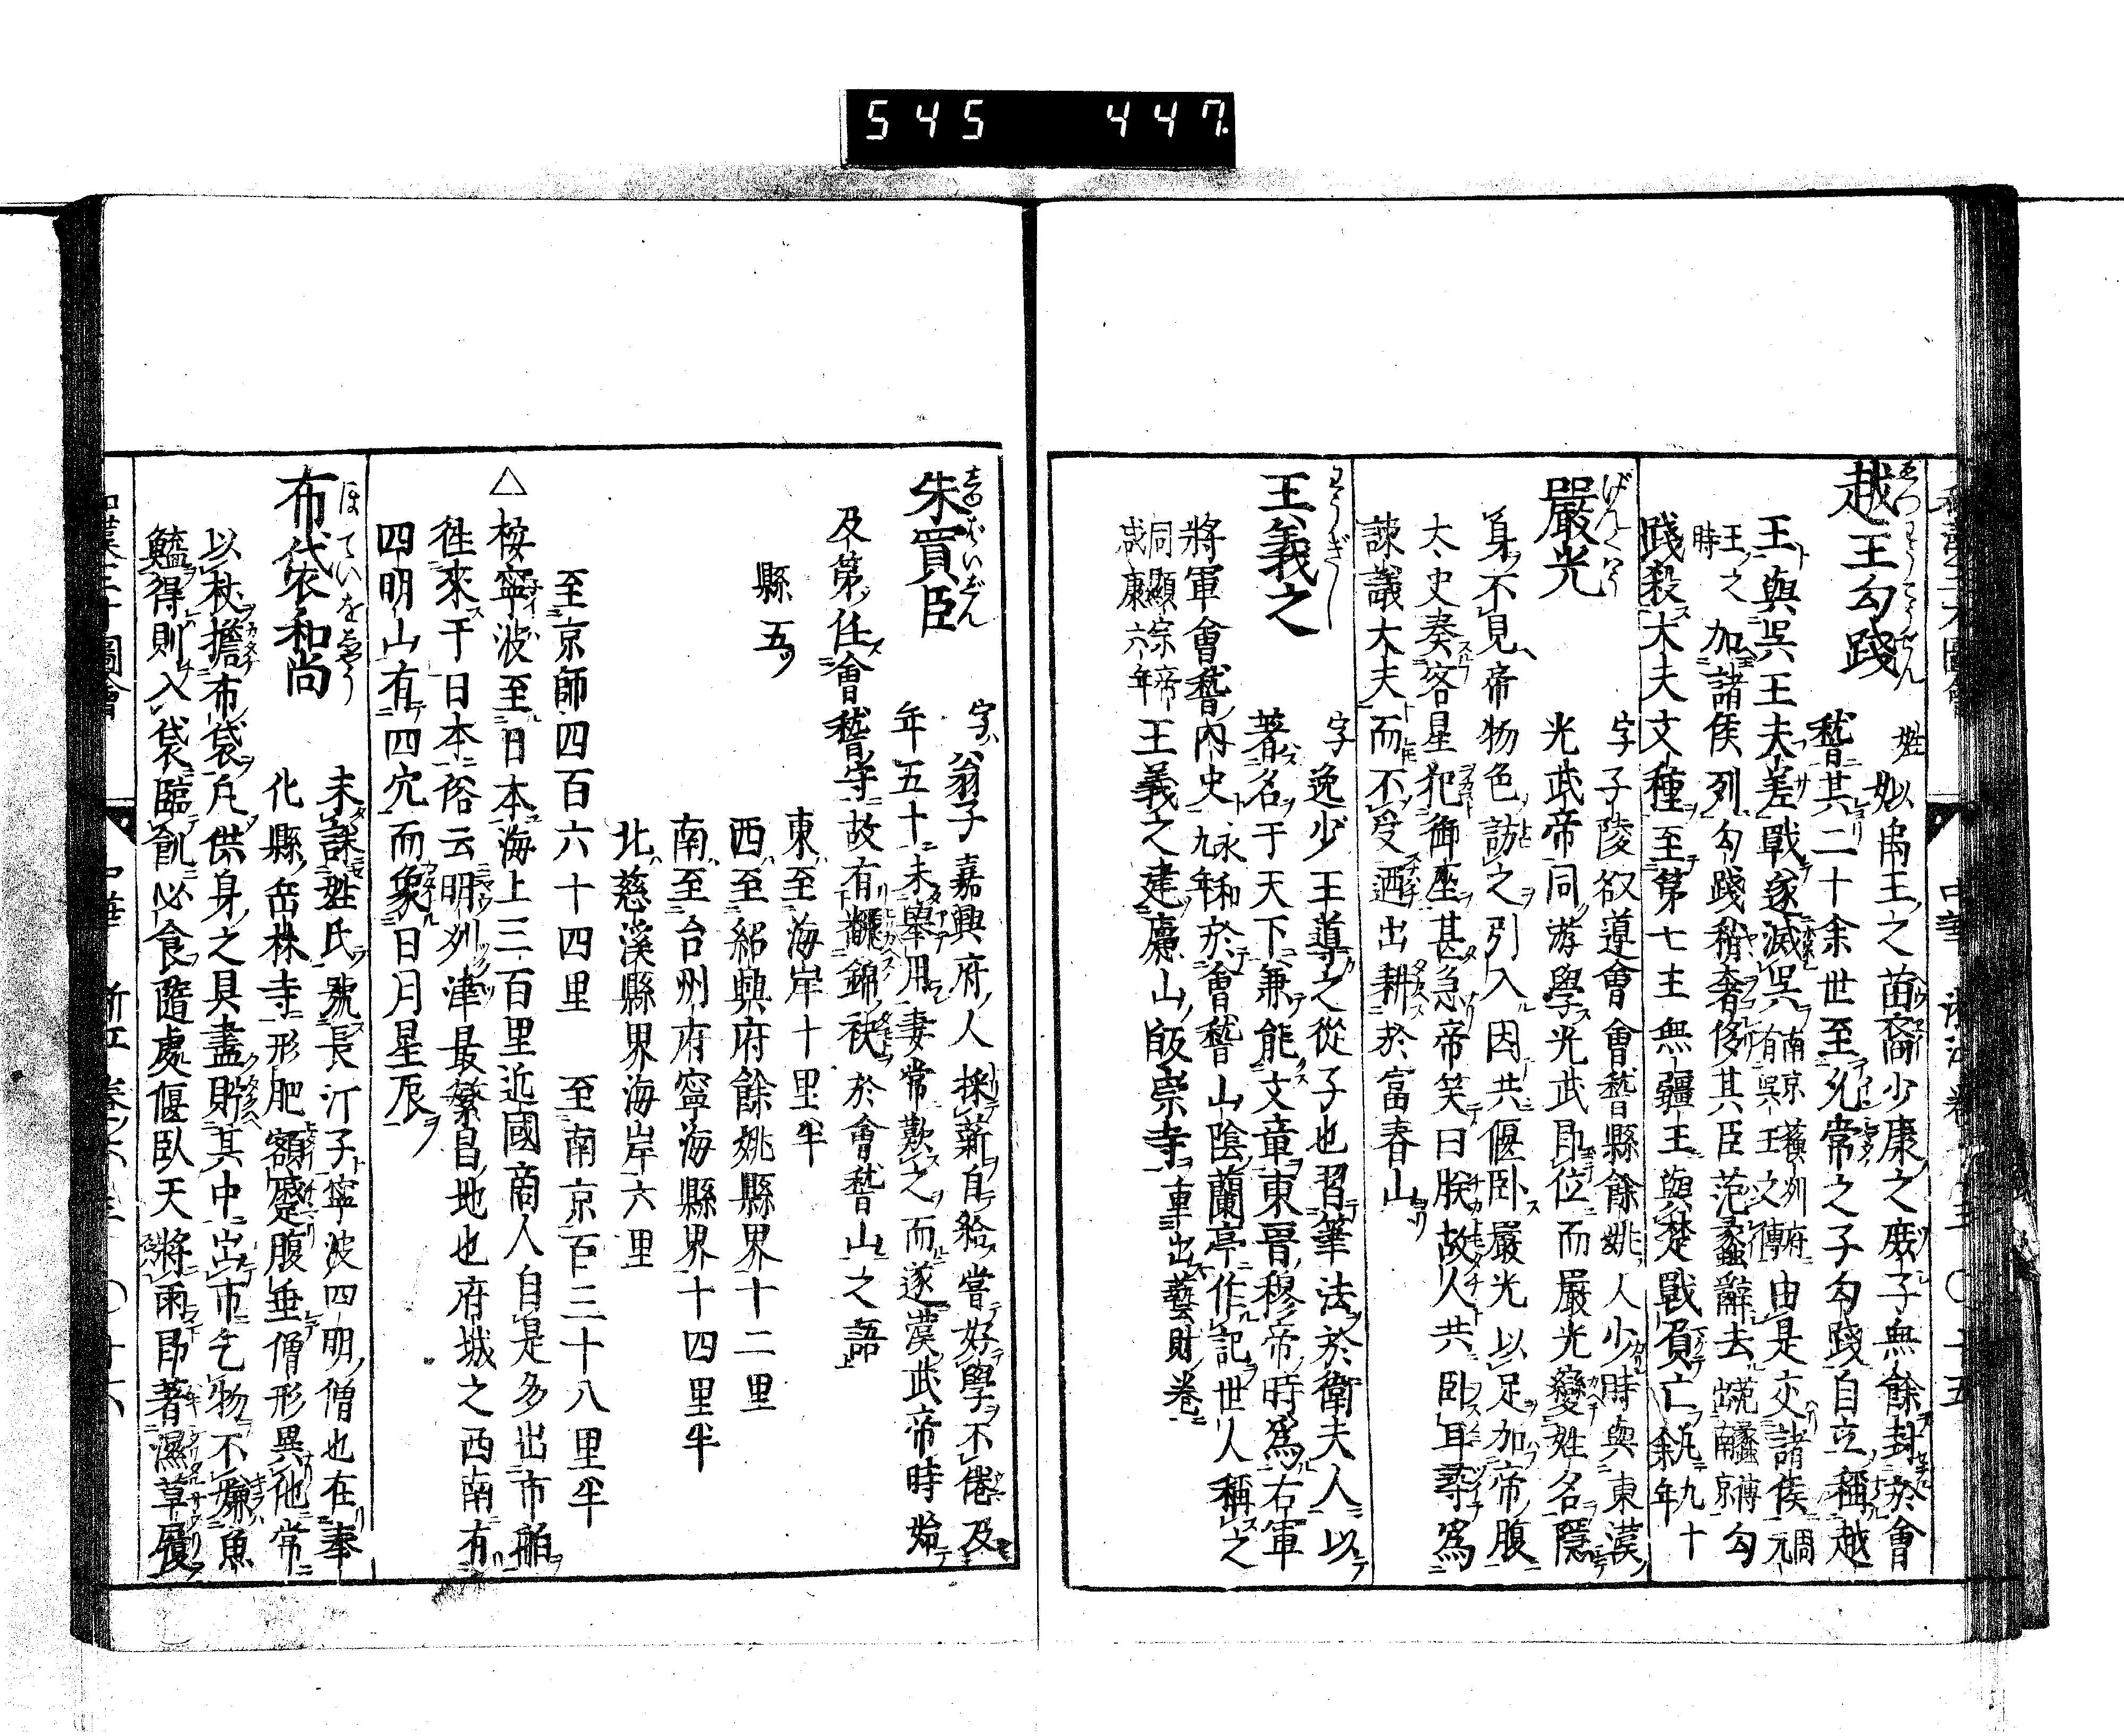 545 447.
越王勾踐 姓
姒禹王之苗裔少康之庶子無餘封於會
稽其二十余世至允常之子勾踐自立稱越
王與吳王夫差戰遂滅吳 南京蘇州府有吳王之傳 由是交諸侯 周元
王之時 加諸侯列勾踐稍奢侈其臣范蠡辭去 范蠡傳出南京 勾
踐殺大夫文種至第七主無疆王與楚戰負亡 凡九十余年
嚴光 字子陵欲遵會會稽縣餘姚人少時與東漢
光武帝同游學光武即位而嚴光變姓名隱
身不見帝物色訪之引入因共偃卧嚴光以足加帝腹
太史奏客星犯御座甚急帝笑曰朕故人共卧耳尋爲
諫議大夫而不受迺出耕於富春山
王義之 字逸少王導之從子也習筆法於衛夫人以
著名于天下兼能文章東晉穆帝時爲右軍
將軍會稽內史 永和九年 於會稽山陰蘭亭作記世人稱之
同顯宗帝咸康六年 王義之建廬山皈崇寺 重出藝財卷
朱買臣 字翁子嘉興府人採薪自給嘗好學不倦及
年五十未舉用妻常歎之而遂漢武帝時始
及第任會稽守故有飜錦袂於會稽山之語
縣五ツ 東至海岸十里半
西至紹興府餘姚縣界十二里
南至台州府寧海縣界十四里半
北慈溪縣界海岸六里
至京師四百六十四里 至南京百三十八里半
△桉寧波至日本海上三百里近國商人自是多出市舶
徃來于日本俗云明州津最繁昌地也府城之西南有
四明山有四穴而象日月星辰
布袋和尚 未詳姓氏號長汀子寧波四明僧也在奉
化縣岳林寺形肥額蹙腹垂僧形異他常
以杖擔布袋凡供身之具盡貯其中出市乞物不嫌魚
鱸得則入袋臨飢必食隨處偃臥天將雨即著濕草履